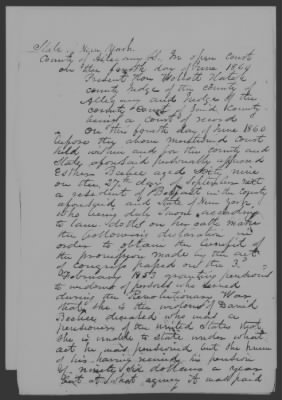 State of New York
County of Allegany SS. In open Court
on the fourth day of June 1860
Present Hon Wolcott Hatch
County Judge of the County of
Allegany and Judge of the
County Court of said County
being a court of record
On this fourth day of June 1860
before the above mentioned court
held within and for the County and
State aforesaid personally appeared
Esther Babcock aged sixty nine
on the 27th day of September next
a resident of Belfast in the County
aforesaid and State of New York
who being duly sworn according
to law doth on her oath make
the following declaration in
order to obtain the benefit of
the provision made in the act
of Congress passed on the 3d
February 1853 granting pensions
to widows of persons who served
during the Revolutionary War
that she is the widow of David
deceased who was a
pensioner of the United States that
she is unable to state under what
act he was pensioned but she knew
of his having received his pension
of ninety six dollars a year
but at what agency it was paid